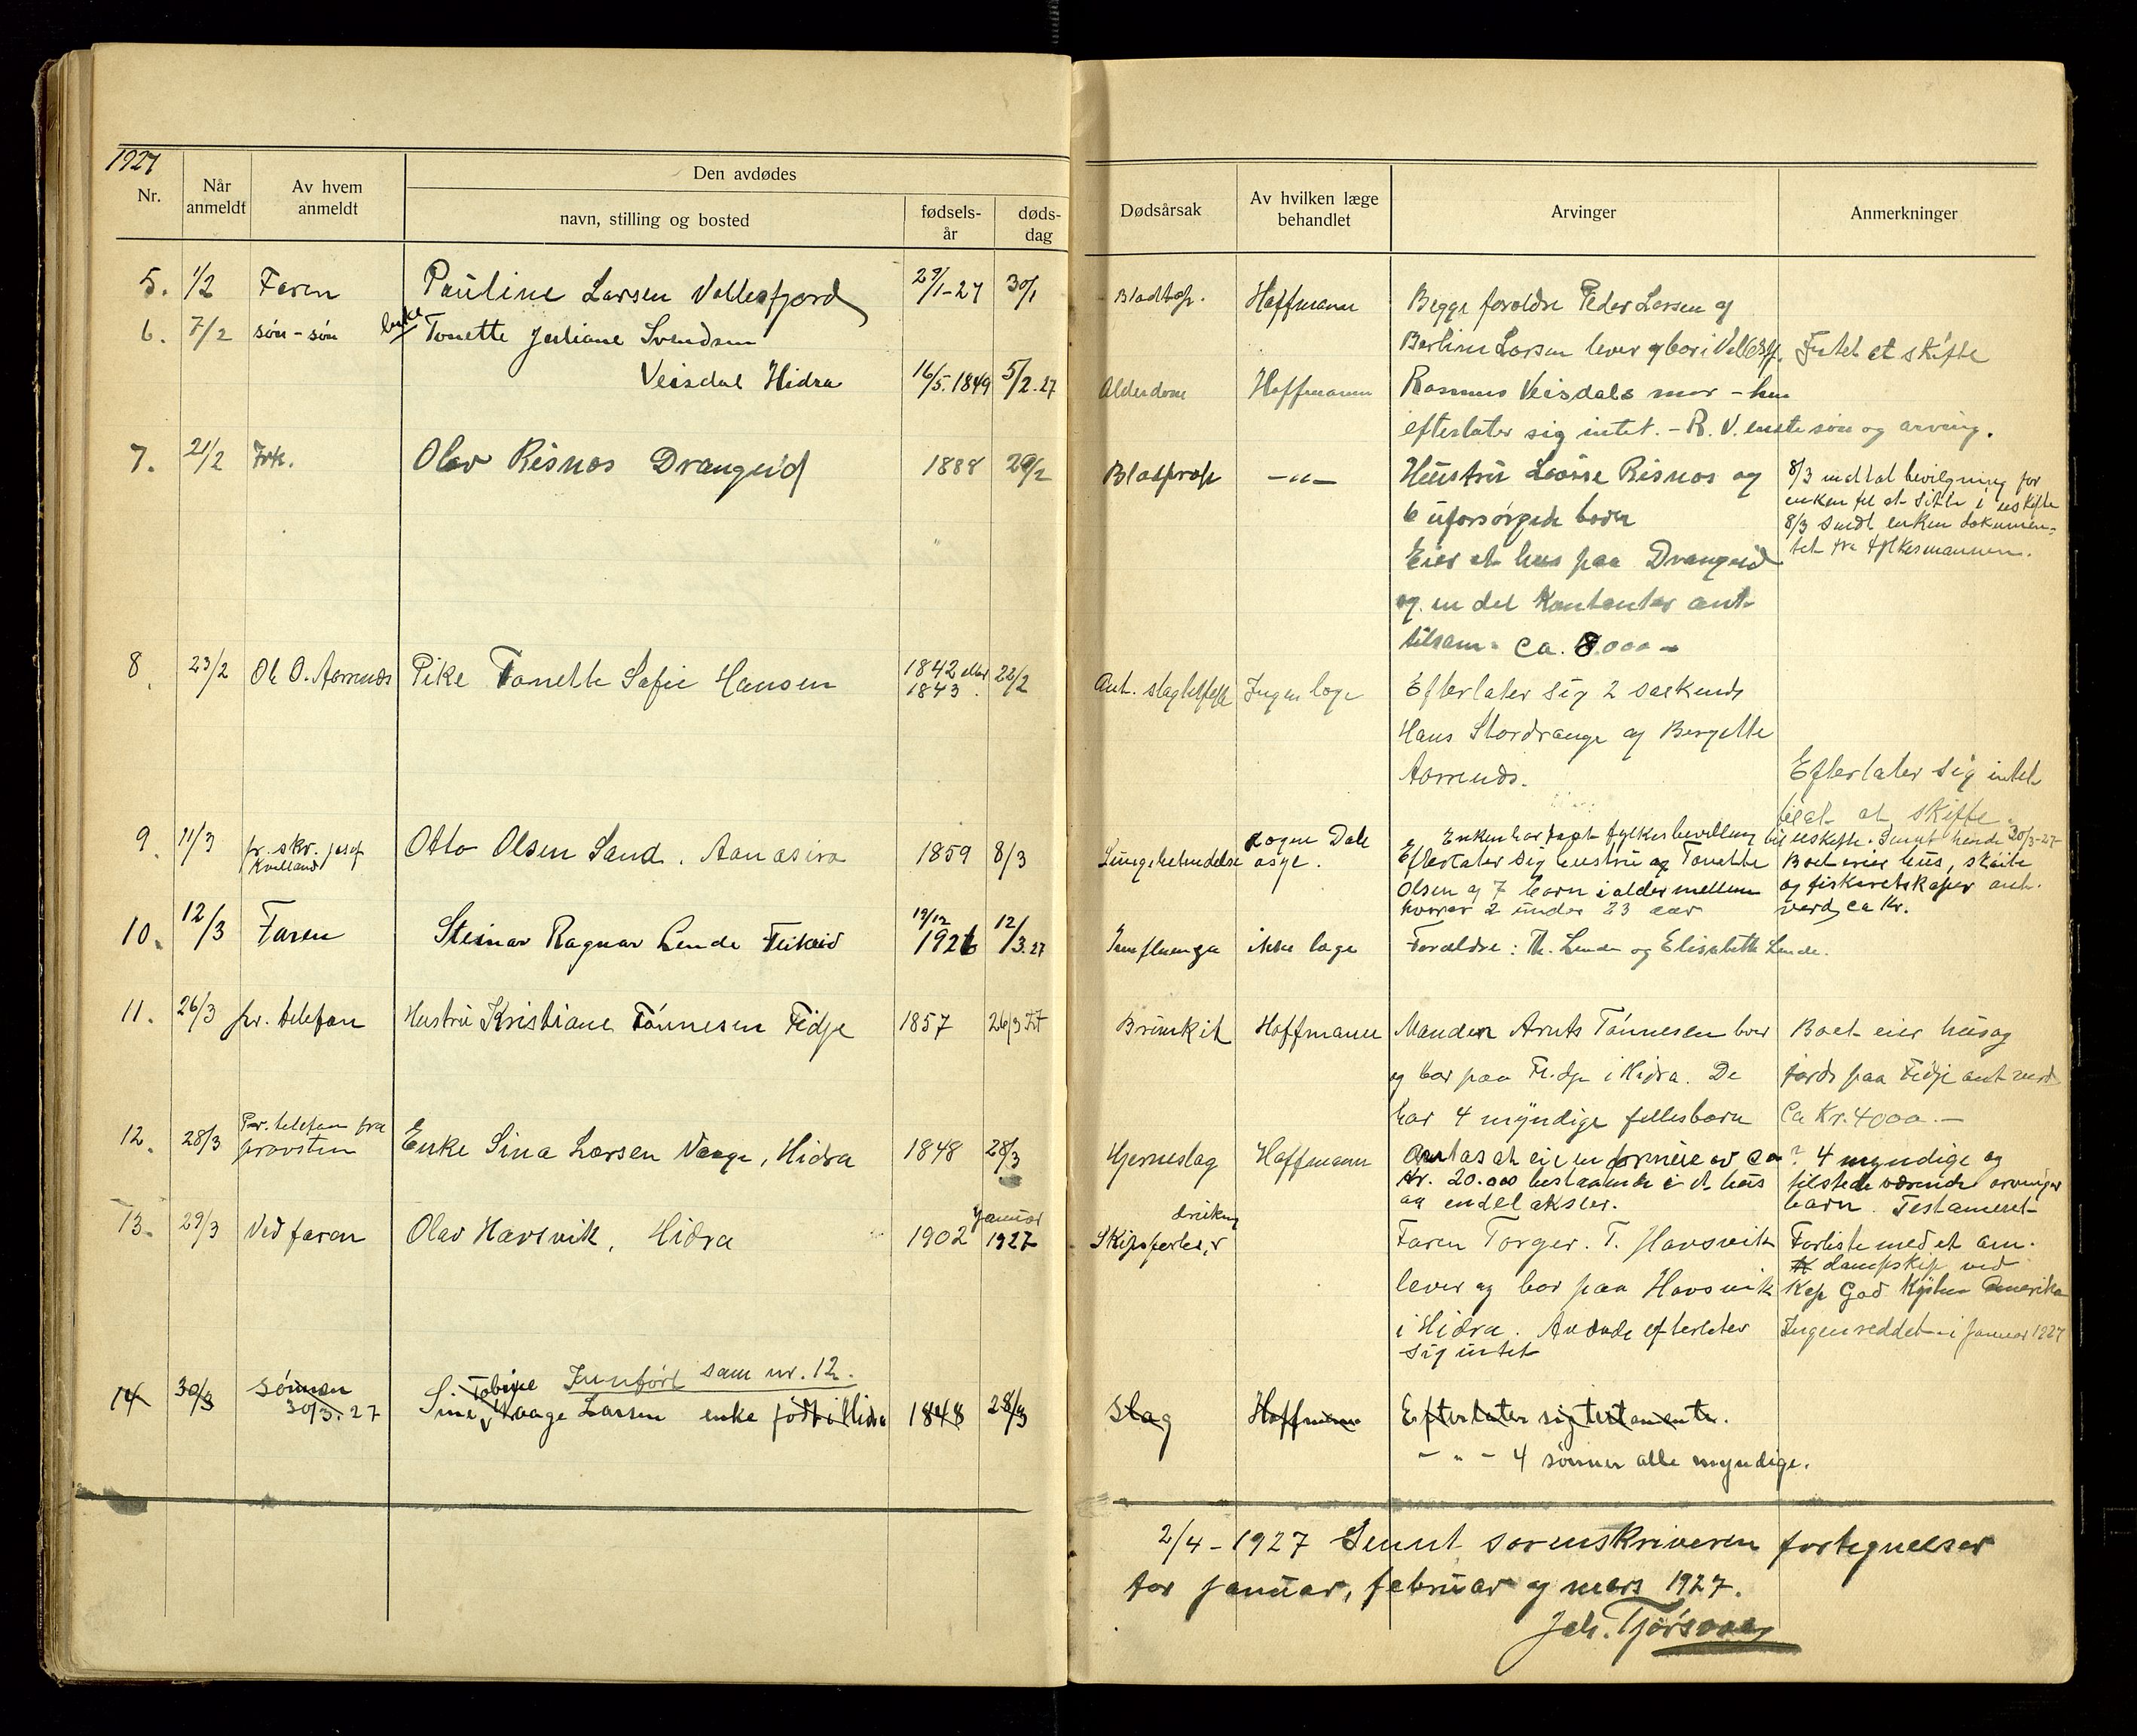 1927
Nr.
Når anmeldt
Av hvem anmeldt
Den avdødes
navn, stilling og bosted
fødsels-år
døds-dag
Dødsårsak
Av hvilken læge behandlet
Arvinger
Anmerkninger
5. 1/2 Faren Pauline Larsen Vollesfjord 29/1-27 30/1 Hoffmann Begge foreldre Peder Larsen og
Berline Larsen lever og bor i Intet at skifte
6. 7/2 søn-søn enke Tonette Juliane Svendsen
Veisdal Hidra 16/5.1849 5/2.27 Alderdom Hoffmann Rasmus Veisdals mor - hun
efterlater sig intet. - R. V. eneste søn og arving.
7. 21/2 Frk. Olav Risnes Drangeid 1888 20/2 Blodprop -"- Hustru Lovise Risnes og
6 uforsørgede barn
Eier et hus paa Drangeid
og en del kontanter ant.
tilsam. ca. 8000 -
8/3 indtat bevilgning for
enken til at sitte i uskifte
8/3 sendt enken dokumen-
tet fra fylkesmannen.
8. 23/2 Ol. O. Aamenes Pike Tonette Sofie Hansen 1842 eller
1843. 22/2 Ant. slagtilfelle Ingen læge Efterlater sig 2 søskende
Hans Stordrange og Bergette
Aamenes.
Efterlater sig intet
at skifte.
9. 11/3 pr. skr. Josef
Kvelland Otto Olsen Sand. Aanasira 1859 8/3 Lungebetendelse Dale Enken har faat fylkesbevilling til uskifte. Sendt hende 30/3-27
Efterlater sig hustru og Tonette
Olsen og 7 barn i alder mellem
hvorav 2 under 23 aar
Boet eier hus, skøite
og fiskeredskaper ant.
verd ca Kr.
10. 12/3 Faren Steinar Ragnar Lende Feikeid 19/12
1926 12/3.27 Imfluenza ikke læge Forældre: Th. Lende og Elisabeth Lende.
11. 26/3 pr. telefon Hustru Kristiane Tønnesen Fidje 1857 26/3 Hoffmann Manden Arnts Tønnesen lever
og bor paa Fidje i Hidra. De
har 4 myndige fellesbarn
Boet eier hus og
jord paa Fidje ant verd
Ca Kr. 4000.-
12. 28/3 Pr. telefon fra
provsten Enke Sina Larsen Vaage, Hidra 1848 28/3 Hjerneslag Hoffmann Antas at eie en formue av ca
Kr. 20.000 bestaaende i et hus
og endel aksier.
? 4 myndige og
tilstedeværende arvinger
barn. Testament
13. 29/3 Ved faren Olav Havsvik, Hidra 1902 Januar
1927 Skipsforlis, drukning Faren Torger. T. Havsvik
lever og bor paa Havsvik
i Hidra. Avdøde efterlater
sig intet
Forliste med et am.
dampskip ved
Kap God Kysten Amerika
Ingen reddet i Januar 1927
14 30/3 Sønnen
30/3.27 Tobine Innført som nr. 12.
Sine Vaage Larsen enke født i Hidra 1848 28/3 Slag Hoffmann Efterlater sig testamente.
- " - 4 sønner alle myndige.
2/4-1927 Sennt sorenskriveren fortegnelser
for januar, februar og mars 1927.
Joh. Tjørsvaag